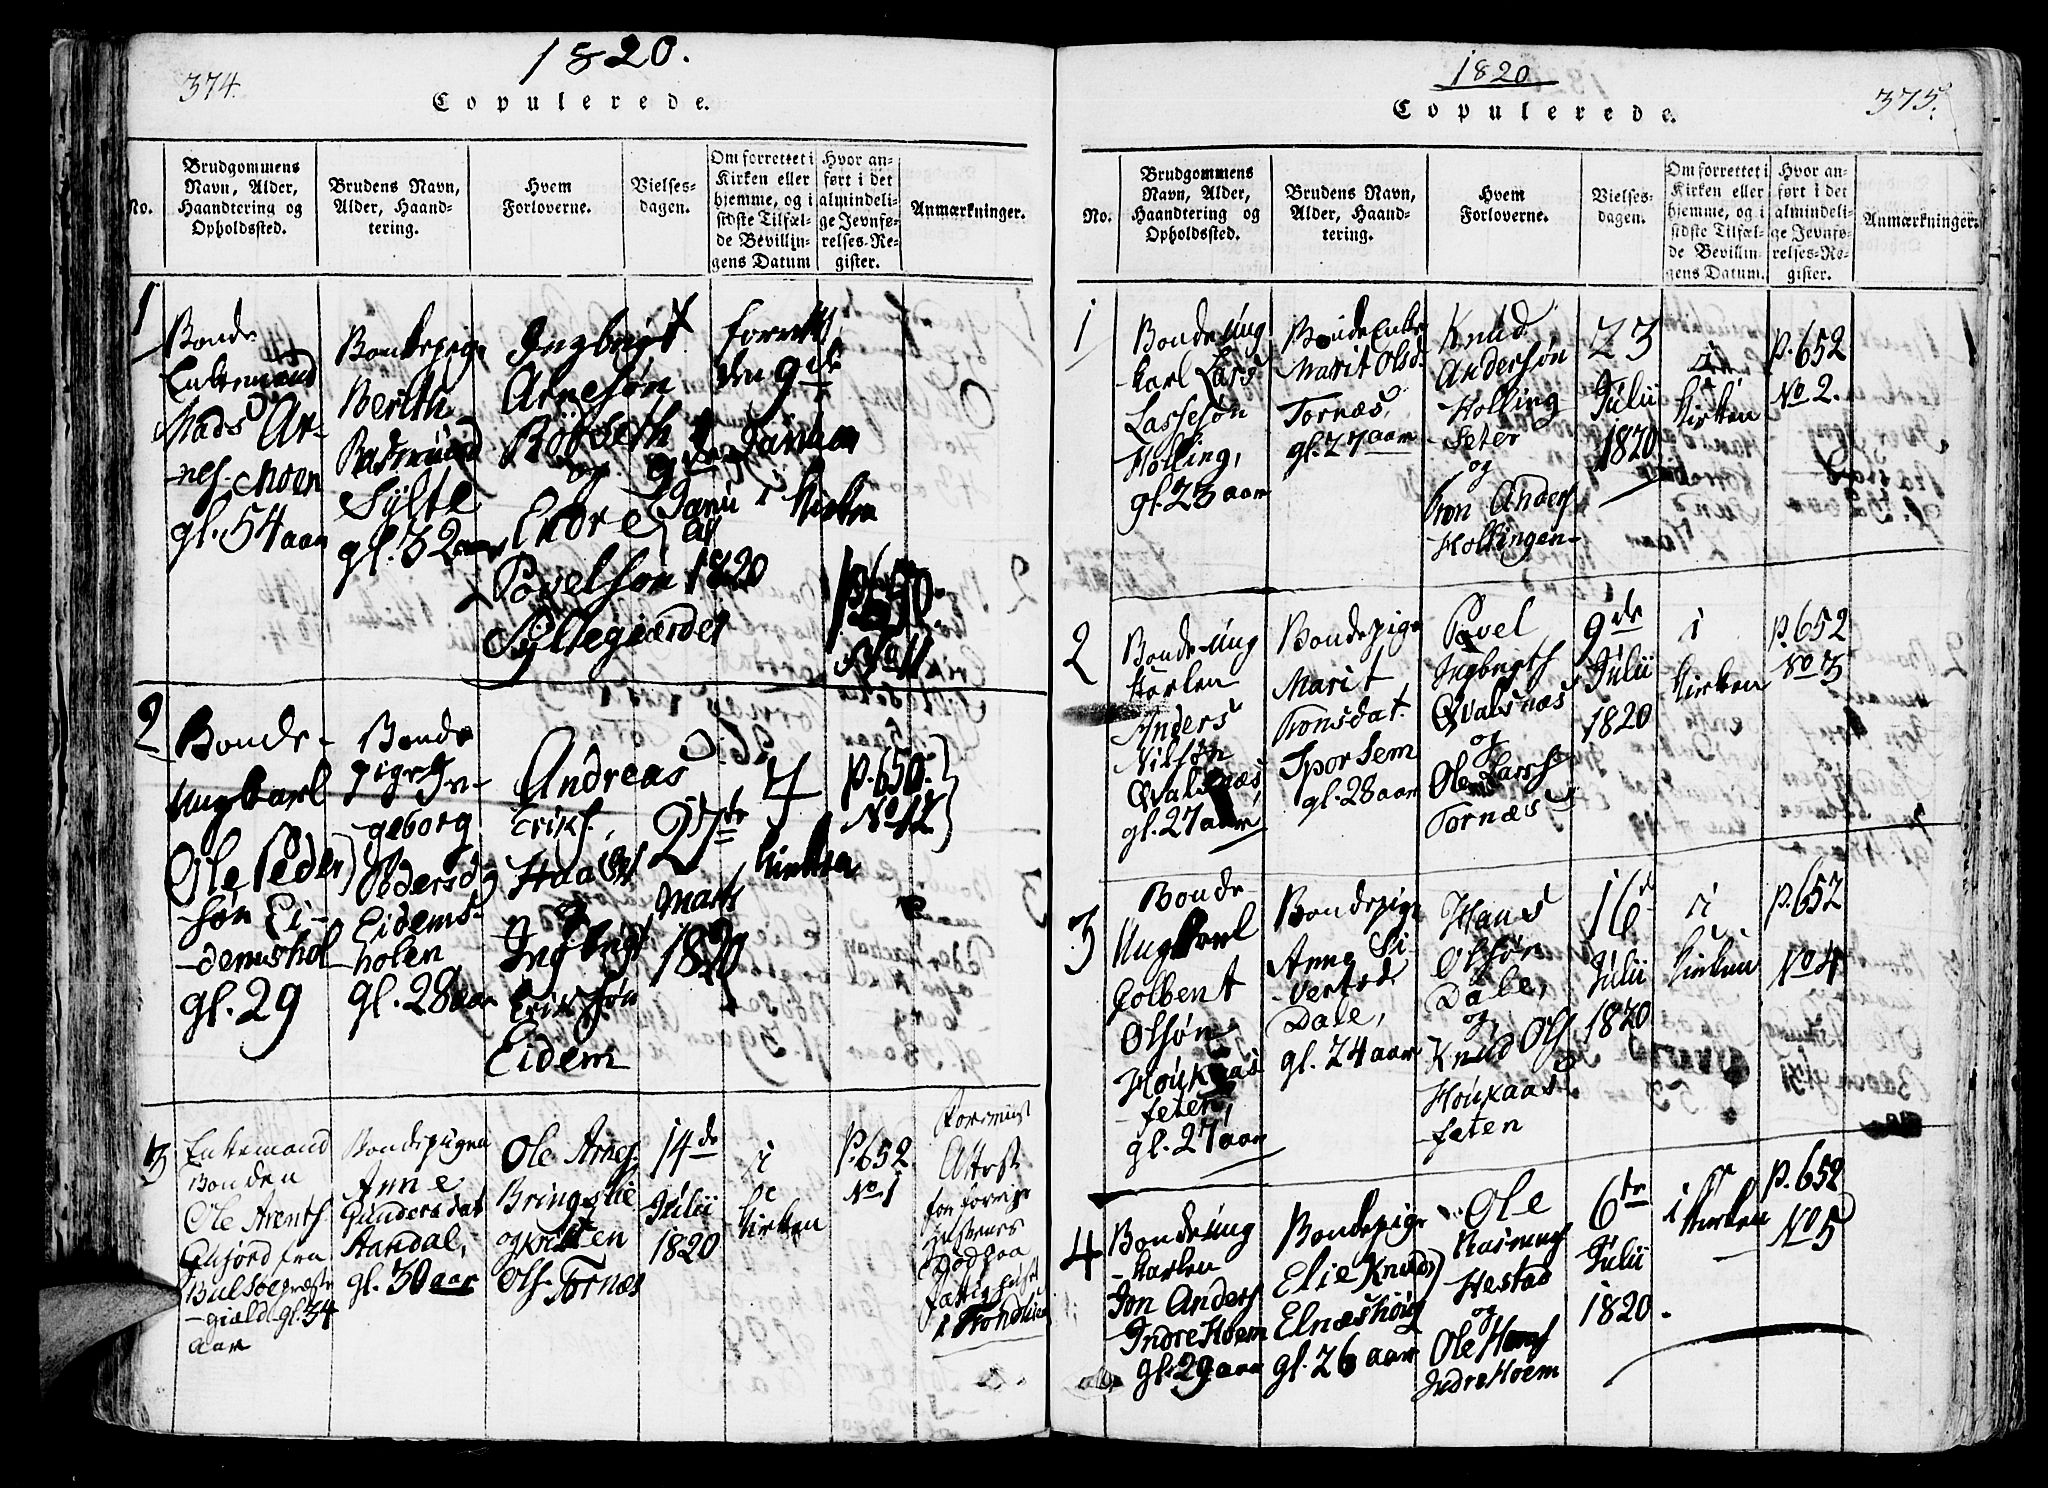 374.
1820.
Copulerede.
No.
Brudgommens
Navn, Alder,
Haandtering og
Opholdssted.
Brudens Navn,
Alder, Haand-
tering.
Hvem
Forloverne.
Vielses-
dagen.
Om forrettet i
Kirken eller
hjemme, og i
sidste Tilfæl-
de Bevillin-
gens Datum
Hvor an-
ført i det
almindeli-
ge Jevnfø-
relses-Re-
gister.
Anmærkninger.
1
Bonde
Enkemand
Mads Ar-
nes. Moen
gl. 54 aar
Bondepige
Berith
Rasmusd
Sylte
gl. 32 aar
Ingbrigt
Arnesøn
Bödseth
og
Endre
Povelsøn
Syltegiærdet
9de
Janu
ar
1820
forrett
den 9de
Januar
i Kirken
p. 650.
No 11
2
Bonde-
Ungkarl
Ole Peder
søn Ei-
demshol
gl. 29
Bonde
pige In-
geborg
Pedersd
Eidems-
holen
gl. 28 aar
Andreas
Eriks.
Haas
og
Ingbrigt
Eriksøn
Eidem
27te
Marts
1820
i
Kirken
p. 650.
No 12
3
Enkemand
Bonden
Ole Arents.
Enfjord fra
Bulsöe præste
-gield gl. 34
aar
Bondepigen
Anne
Gundersdat
Aandal,
gl. 30 aar
Ole Arnes.
Bringslie
og Kristen
Ols. Tornæs
14de
Julii
1820
i
Kirken
P. 652.
No 1
Attest
for forrige
Hustrues
Död paa
i Trondhiem
1820
Copulerede.
375.
No.
Brudgommens
Navn, Alder,
Haandtering og
Opholdssted.
Brudens Navn,
Alder, Haand-
tering.
Hvem
Forloverne.
Vielses-
dagen.
Om forrettet i
Kirken eller
hjemme, og i
sidste Tilfæl-
de Bevillin-
gens Datum.
Hvor an-
ført i det
almindeli-
ge Jevnfø-
relses-Re-
gister.
Anmærkninger.
1
Bonde Ung
-karl Lars
Lassesøn
Holling,
gl. 23 aar
Bonde Enke
Marit Olsd.
Tornæs,
gl. 27 aar
Knud
Andersøn
Holling
-Seter
og
Jon Anders
Hollingen-
23
Julii
1820
i
Kirken
p. 652
No 2.
2
Bonde Ung
Karlen
Anders
Nilsøn
Qvalsnæs,
gl. 27 aar
Bondepige
Marit
Jonsdat.
Sporsem
gl. 28 aar
Povel
Ingbrigth
Qvalsnæs
og
Ole Larss
Tornæs
9de
Julii
1820
i
Kirken
p. 652
No 3
3
Bonde-
Ungkarl
Colbent
Olsøn
Houkaas
seter,
gl. 27 aar
Bondepige
Anne Si
-vertsd
Dale,
gl. 24 aar
Hans
Olsøn
Dale,
og
Knud Ols
Houkaas
-seten
16d
Julii
1820
i
Kirken
p. 652
No 4
4
Bonde Ung
-karlen
Jon Anders
Indre Hoem
gl. 29 aar
Bondepige
Elie Knuds
Elnæshøig
gl. 26 aar
Ole
Rasmus
Hestad
og
Ole Hans
Indre Hoem
6te
Julii
1820.
i Kirken
p. 652
No 5